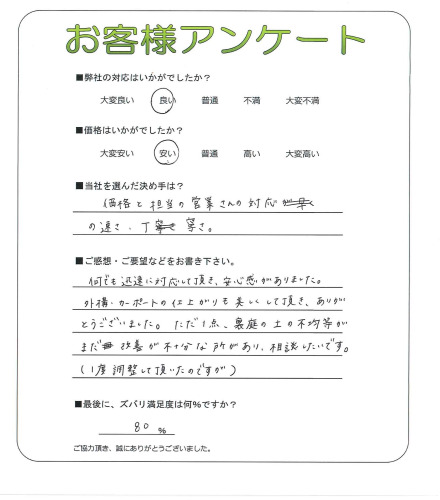 お客様アンケート
■弊社の対応はいかがでしたか？
大変良い 良い 普通 不満 大変不満
■価格はいかがでしたか？
大変安い 安い 普通 高い 大変高い
■当社を選んだ決め手は？
価格と担当の営業さんの対応
の速さ、丁寧さ。
■ご感想・ご要望などをお書き下さい。
何でも迅速に対応して頂き、安心感がありました。
外構・カーポートの仕上がりも美しくして頂き、ありが 
とうございました。ただ1点、裏庭の土の不均等が
まだ改善が不十分な所があり、相談したいです。
(1度調整して頂いたのですが)
■最後に、ズバリ満足度は何％ですか？
80 ％
ご協力頂き、誠にありがとうございました。